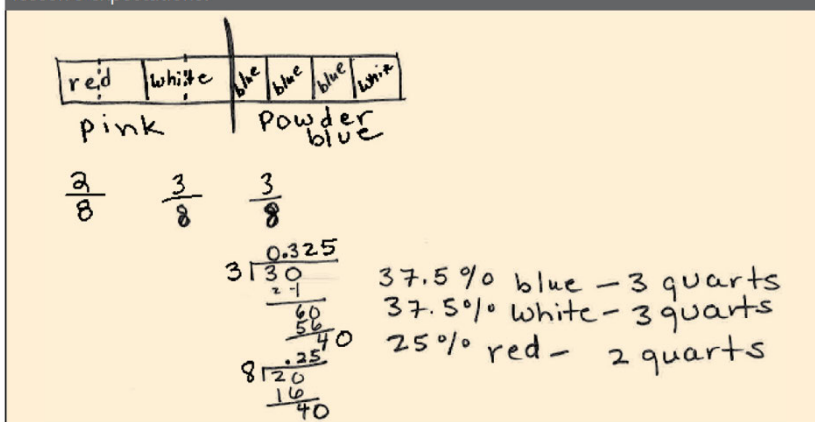 red white blue blue blue white
pink powder
blue
2/8 3/8 3/8
0.325
3 30
21
60
56
40
.25
8 20
16
40
37.5% blue - 3 quarts
37.5% white - 3 quarts
25% red - 2 quarts